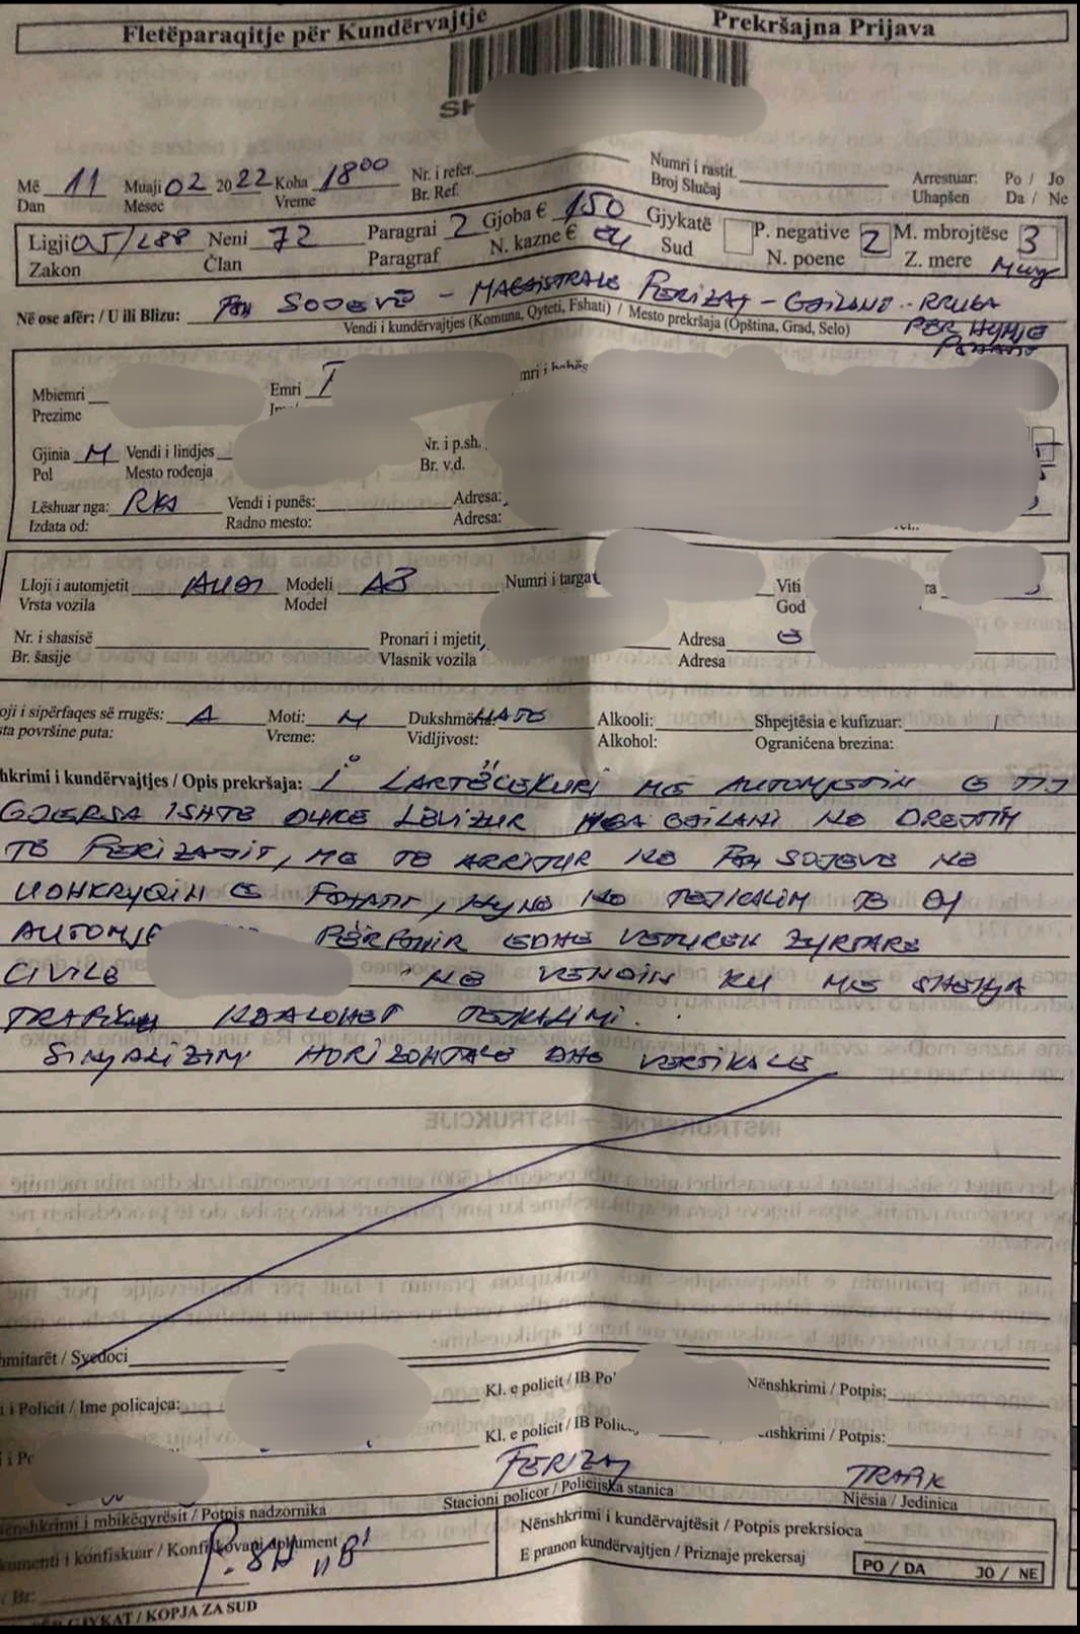 Fletëparaqitje për Kundërvajtje Prekršajna Prijava
SH
Më 11 Muaji 02 2022 Koha 18⁰⁰ Nr. i refer. Numri i rastit. Arrestuar: Po / Jo
Dan Mesec Vreme Br. Ref. Broj Slučaj Uhapšen Da / Ne
Ligji 05/L88 Neni 72 Paragrai 2 Gjoba € 150 Gjykatë P. negative 2 M. mbrojtëse 3
Zakon Član Paragraf N. kazne € Sud N. poene Z. mere Muaj
Në ose afër: / U ili Blizu: FSH SOJEVË - MAGJISTRALE FERIZAJ - GJILANI - RRUGA
Vendi i kundërvajtjes (Komuna, Qyteti, Fshati) / Mesto prekršaja (Opština, Grad, Selo) PËR HYRJE
Mbiemri Emri
Prezime
Gjinia M Vendi i lindjes Nr. i p.sh.
Pol Mesto rođenja Br. v.d.
Lëshuar nga: RKS Vendi i punës: Adresa:
Izdata od: Radno mesto: Adresa:
Lloji i automjetit AUDI Modeli A3 Numri i targat Viti
Vrsta vozila Model God
Nr. i shasisë Pronari i mjetit Adresa
Br. šasije Vlasnik vozila Adresa
oji i sipërfaqes së rrugës: A Moti: M Dukshmëria: NATË Alkooli: Shpejtësia e kufizuar: /
sta površine puta: Vreme: Vidljivost: Alkohol: Ograničena brezina:
hkrimi i kundërvajtjes / Opis prekršaja: I LARTËCEKURI ME AUTOMJETIN E TIJ
GJERSA ISHTE DUKE LËVIZUR NGA GJILANI NË DREJTIM
TË FERIZAJIT, ME TË ARRITUR NË FSH SOJEVË NË
UDHKRYQIN E FSHATIT, HYNË NË TEJKALIM TË DY
AUTOMJE PËRFSHIR EDHE VETUREN ZYRTARE
CIVILE NË VENDIN KU ME SHENJA
TRAFIKU NDALOHET TEJKALIMI.
SINJALIZIMI HORIZONTALE DHE VERTIKALE
hmitarët / Svedoci
i Policit / Ime policajca: Kl. e policit / IB Po Nënshkrimi / Potpis:
Kl. e policit / IB Polic nshkrimi / Potpis:
FERIZAJ TRAFIK
ënshkrimi i mbikëqyrësit / Potpis nadzornika Stacioni policor / Policijska stanica Njësia / Jedinica
kumenti i konfiskuar / Konfiskovani dokument Nënshkrimi i kundërvajtësit / Potpis prekrsioca
"B" E pranon kundërvajtjen / Priznaje prekersaj PO / DA JO / NE
/ Br:
GJYKAT / KOPJA ZA SUD